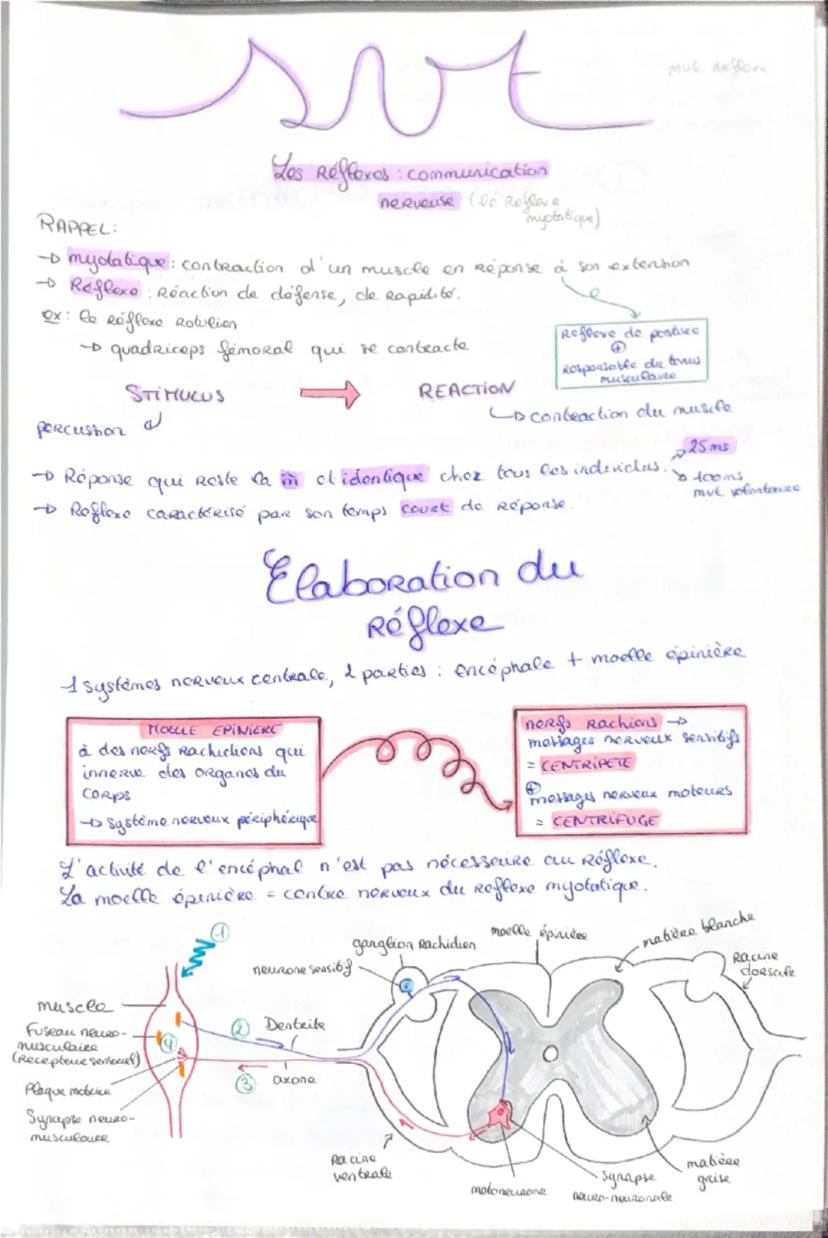 svt
mvt réflexe
Les Réflexes : communication
nerveuse (le Réflexe
myotatique)
RAPPEL:
→ myotatique : contraction d'un muscle en réponse à son extension
→ Réflexe : Réaction de défense, de Rapidité.
ex : le réflexe Rotulien
→ quadriceps fémoral qui se contracte
Reflexe de posture
⊕
Responsable du tonus
musculaire
STIMULUS → REACTION
percussion
↳ contraction du muscle
→ Réponse qui Reste la m̄ et identique chez tous les individus.
25 ms
100ms
mvt volontaire
→ Reflexe caractérisé par son temps court de réponse.
Elaboration du
réflexe
1 systèmes nerveux centrale, 2 parties : encéphale + moelle épinière
MOELLE EPINIERE
à des nerfs Rachidiens qui
innerve des organes du
corps
→ système nerveux périphérique
nerfs Rachiens →
messages nerveux sensitifs
= CENTRIPETE
⊕
messages nerveux moteurs
= CENTRIFUGE
L'activité de l'encéphal n'est pas nécesseire au Réflexe.
La moelle épinière = centre nerveux du reflexe myotatique.
1
ganglion Rachidien
moelle épinière
matière blanche
neurone sensitif
Racine
dorsale
muscle
Fuseau neuro-
musculaire
(Récepteur sensoriel)
4
2
Dentrite
3
axone
Plaque motrice
Synapse neuro-
musculaire
Racine
ventrale
motoneurone
Synapse
neuro-neuronale
matière
grise